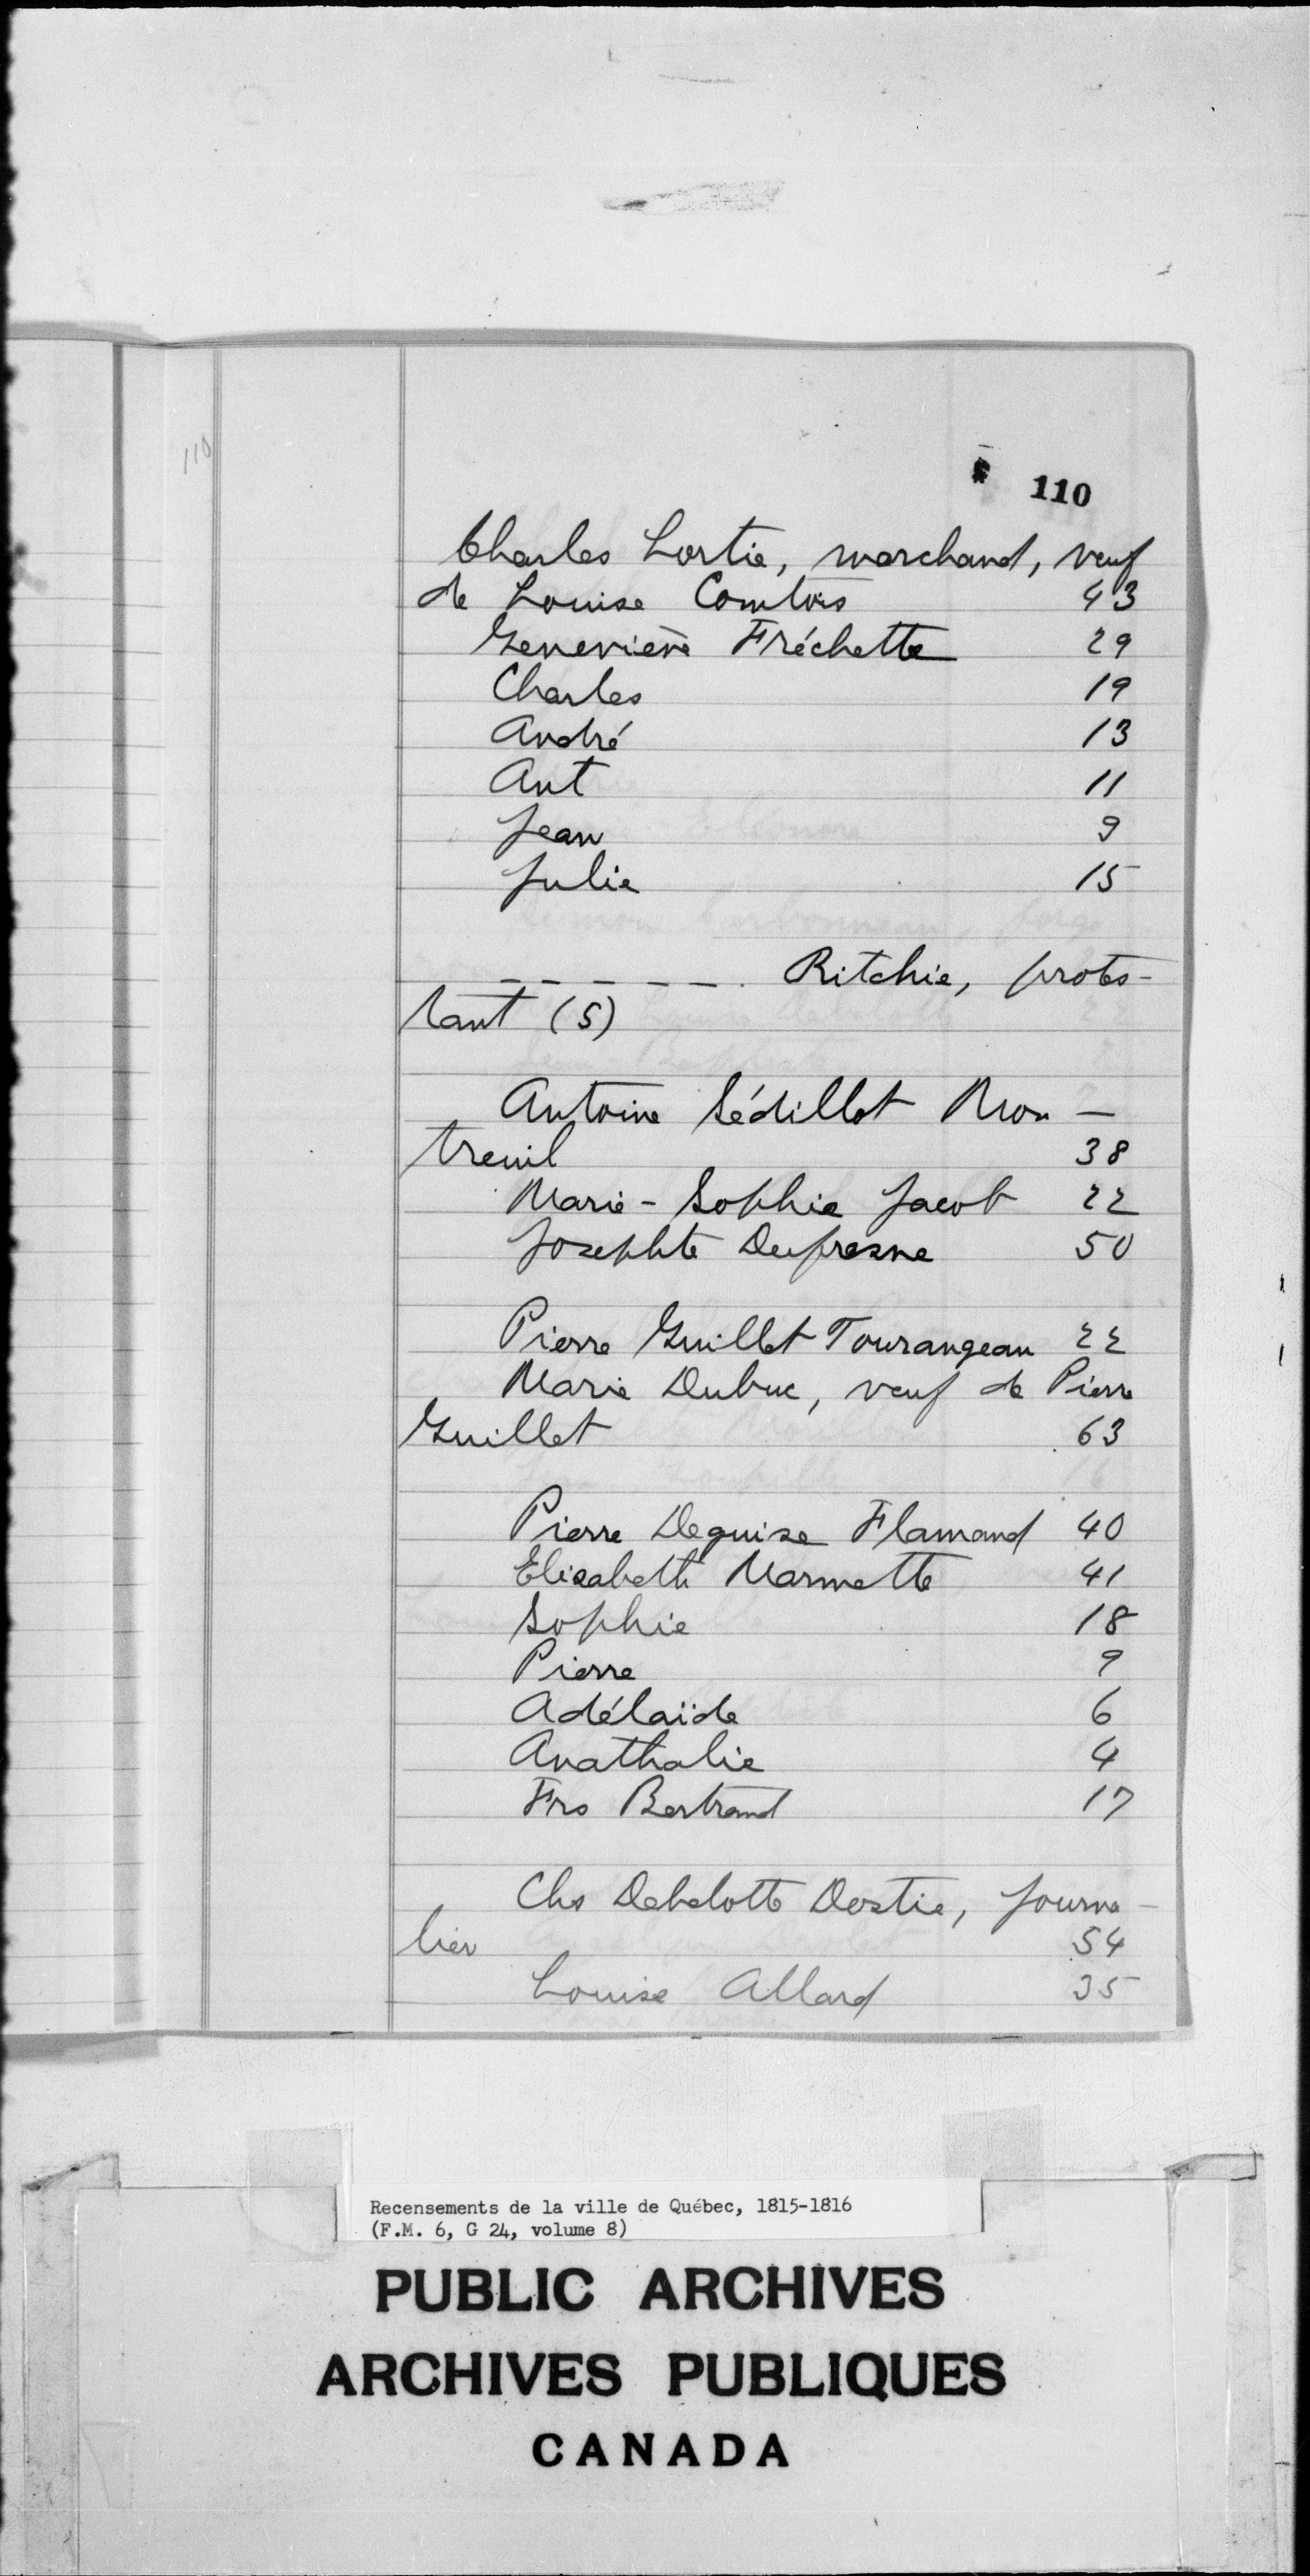 110
110
Charles Lortie, marchand, veuf
de Louise Comtois 43
Geneviève Fréchette 29
Charles 19
André 13
Ant 11
Jean 9
Julie 15
_ _ _ _ _ _ . Ritchie, protes-
tant (5)
Antoine Sédillot Mon-
treuil 38
Marie-Sophie Jacob 22
Josephte Dufresne 50
Pierre Guillet Tourangeau 22
Marie Dubuc, veuf de Pierre
Guillet 63
Pierre Deguise Flamand 40
Elizabeth Marmette 41
Sophie 18
Pierre 9
Adélaïde 6
Anathalie 4
Frs Bertrand 17
Chs Debelotte Destie, journa-
lier 54
Louise Allard 35
Recensements de la ville de Québec, 1815-1816
(F.M. 6, G 24, volume 8)
PUBLIC ARCHIVES
ARCHIVES PUBLIQUES
CANADA